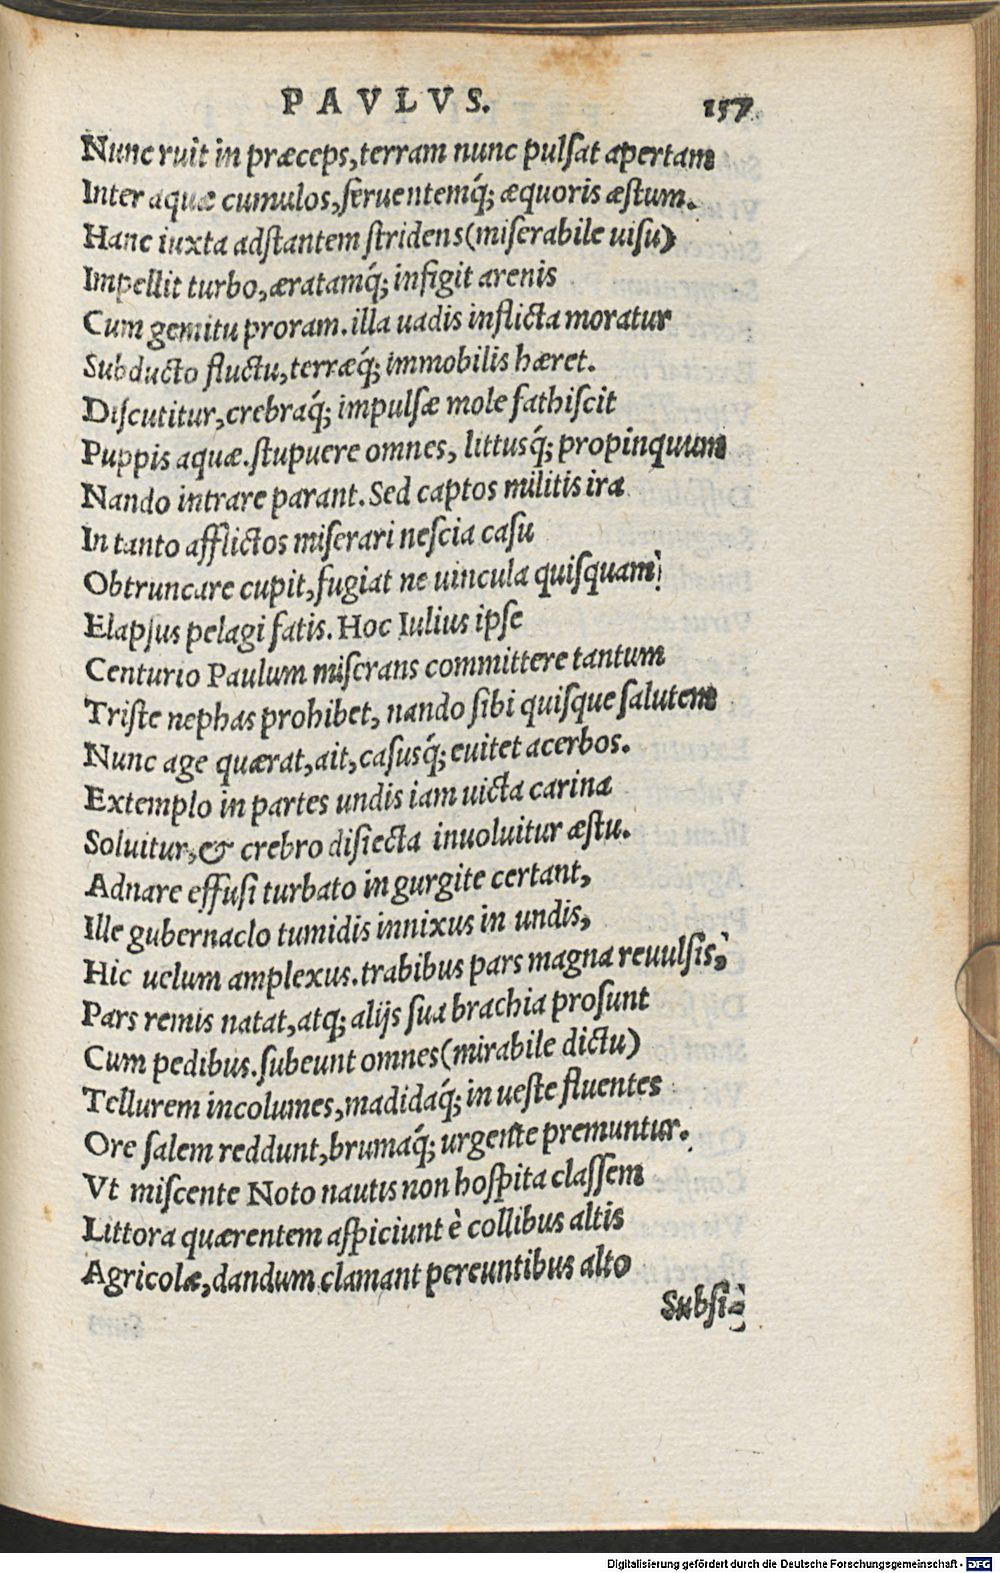 PAVLVS. 157
Nunc ruit in præceps, terram nunc pulſat apertam
Inter aquæ cumulos, feruentemq́; æquoris æſtum.
Hanc iuxta adſtantem ſtridens (miſerabile uiſu)
Impellit turbo, æratamq́; infigit arenis
Cum gemitu proram. illa uadis inflicta moratur
Subducto fluctu, terræq́; immobilis hæret.
Diſcutitur, crebraq́; impulſæ mole fathiſcit
Puppis aquæ. ſtupuere omnes, littusq́; propinquum
Nando intrare parant. Sed captos militis iræ
In tanto afflictos miſerari neſcia caſu
Obtruncare cupit, fugiat ne uincula quiſquam
Elapſus pelagi fatis. Hoc Iulius ipſe
Centurio Paulum miſerans committere tantum
Triſte nephas prohibet, nando ſibi quiſque ſalutem
Nunc age quærat, ait, caſusq́; euitet acerbos.
Extemplo in partes undis iam uicta carina
Soluitur, & crebro diſiecta inuoluitur æſtu.
Adnare effuſi turbato in gurgite certant,
Ille gubernaclo tumidis innixus in undis,
Hic uelum amplexus. trabibus pars magna reuulſis,
Pars remis natat, atq; alijs ſua brachia proſunt
Cum pedibus. ſubeunt omnes (mirabile dictu)
Tellurem incolumes, madidaq́; in ueſte fluentes
Ore ſalem reddunt, brumaq́; urgente premuntur.
Vt miſcente Noto nautis non hoſpita claſſem
Littora quærentem aſpiciunt è collibus altis
Agricolæ, dandum clamant pereuntibus alto
Subſi-
Digitalisierung gefördert durch die Deutsche Forschungsgemeinschaft - DFG